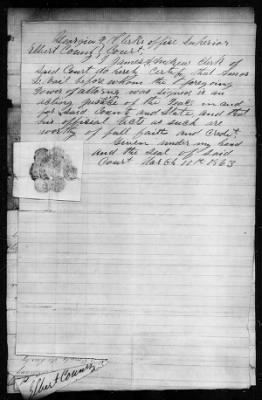 Georgia } Clerks office Superior
Elbert County } Court
I James Andrew Clerk of
Said Court do hereby Certify that Amos
Vail before whom the foregoing
Power of attorney was signed is an
acting Justice of the Peace in and
for Said County and State, and that
his official Acts as such are
worthy of full faith and Credit
Given under my hand
and the Seal of Said
Court March 10th 1863
Elbert County